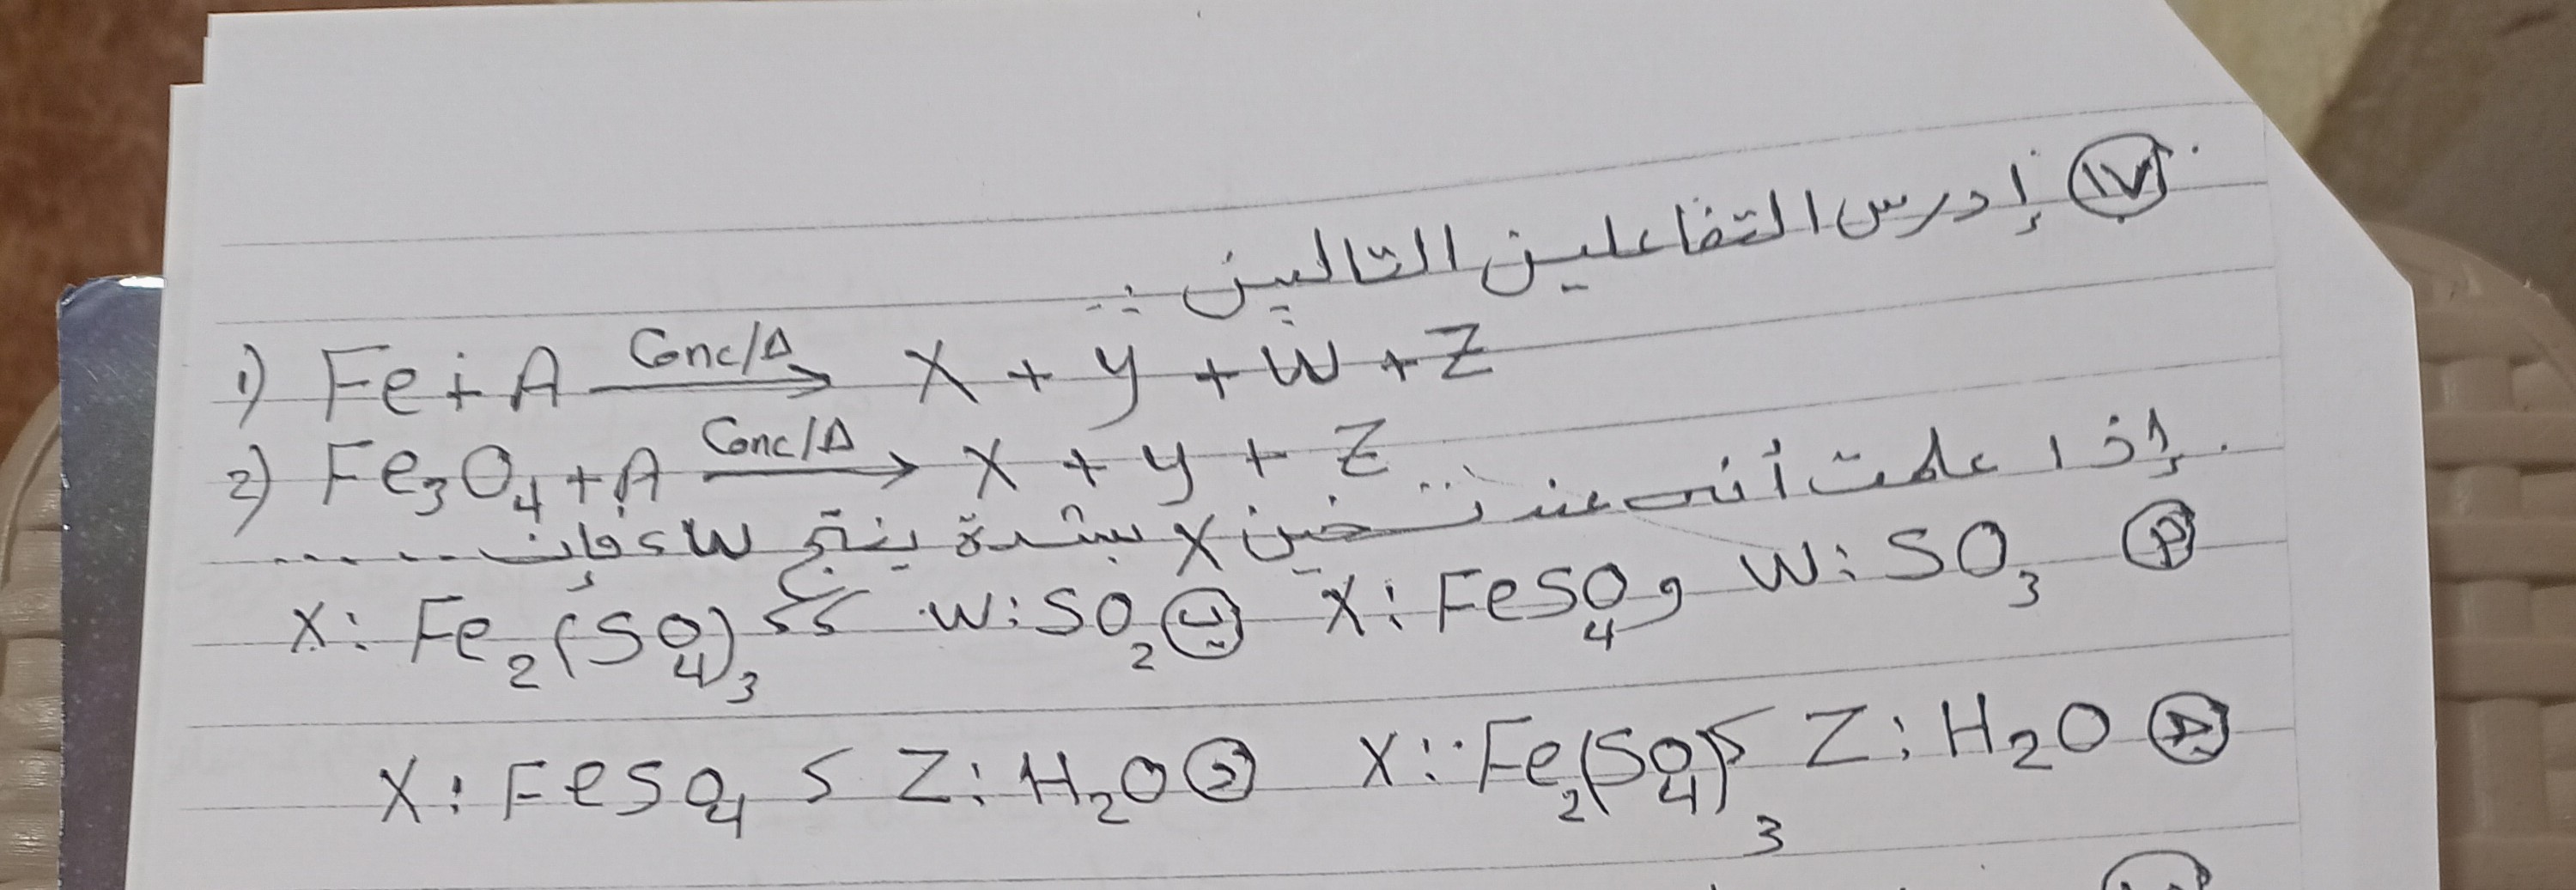 ١٧ إدرس التفاعلين التاليين :-
1) Fe + A —Conc/Δ→ X + y + W + Z
2) Fe₃O₄ + A —Conc/Δ→ X + y + Z
إذا علمت أنه عند تسخين X بشدة ينتج W، فإن ......
أ W: SO₃ و X: FeSO₄ ب W: SO₂ ، X: Fe₂(SO₄)₃
ج Z: H₂O ، X: Fe₂(SO₄)₃ د Z: H₂O ، X: FeSO₄